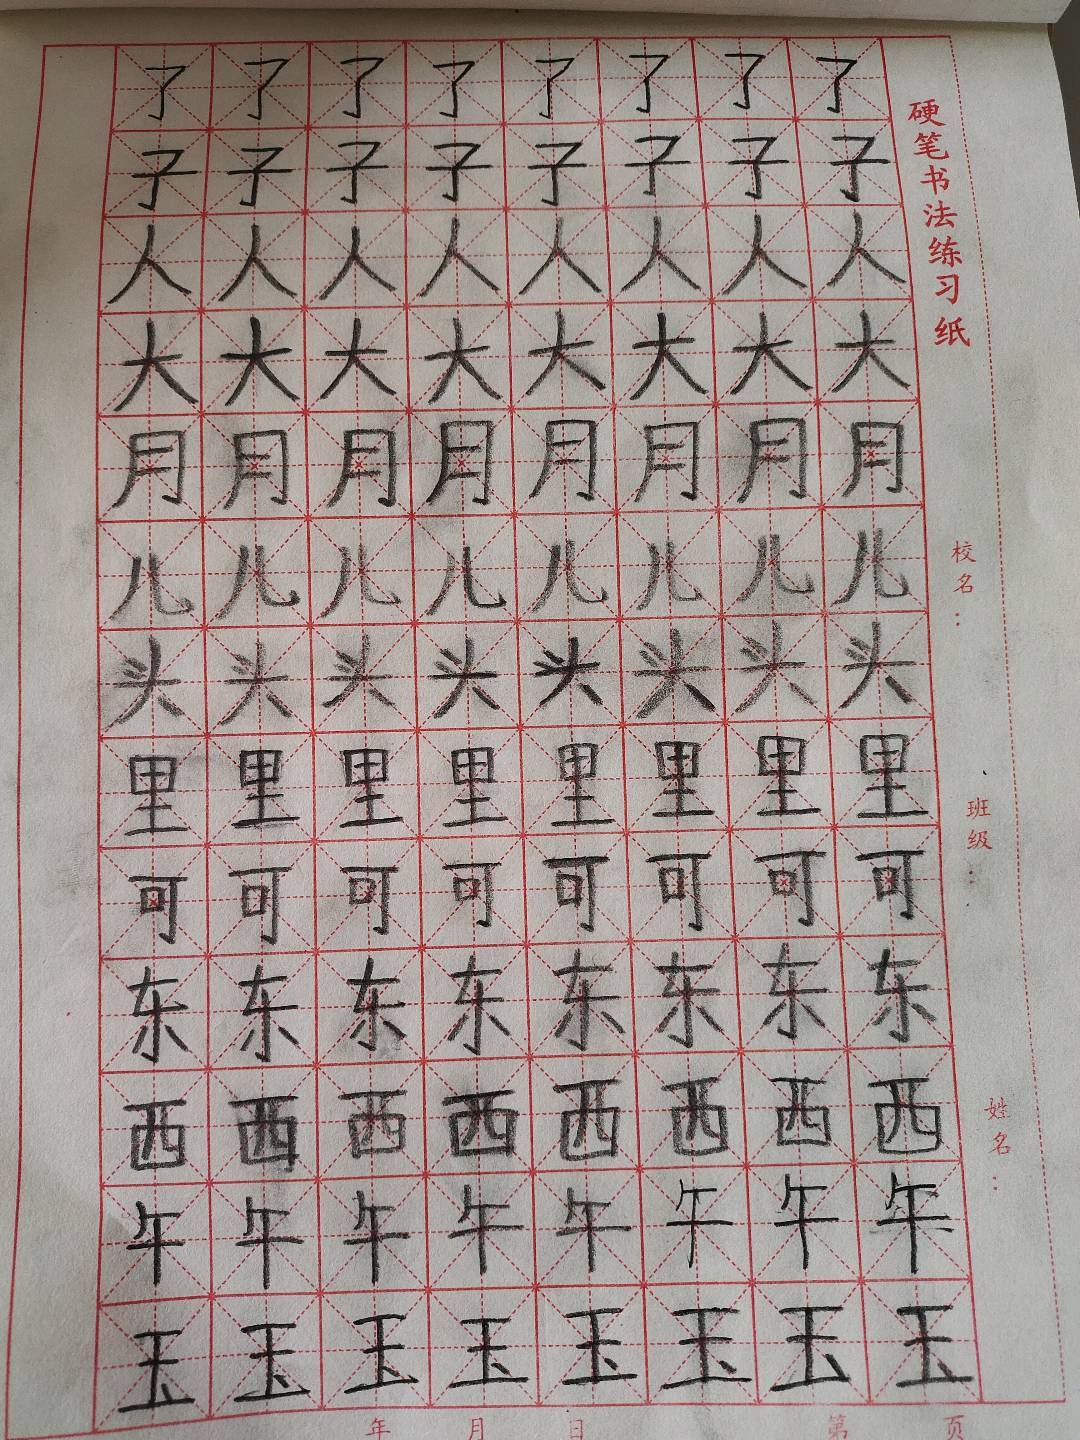 硬笔书法练习纸
了了了了了了了了
子子子子子子子子
人人人人人人人人
大大大大大大大大
月月月月月月月月
儿儿儿儿儿儿儿儿
头头头头头头头头
里里里里里里里里
可可可可可可可可
东东东东东东东东
西西西西西西西西
午午午午午午午午
玉玉玉玉玉玉玉玉
校名:
班级:
姓名:
年 月 日 第 页